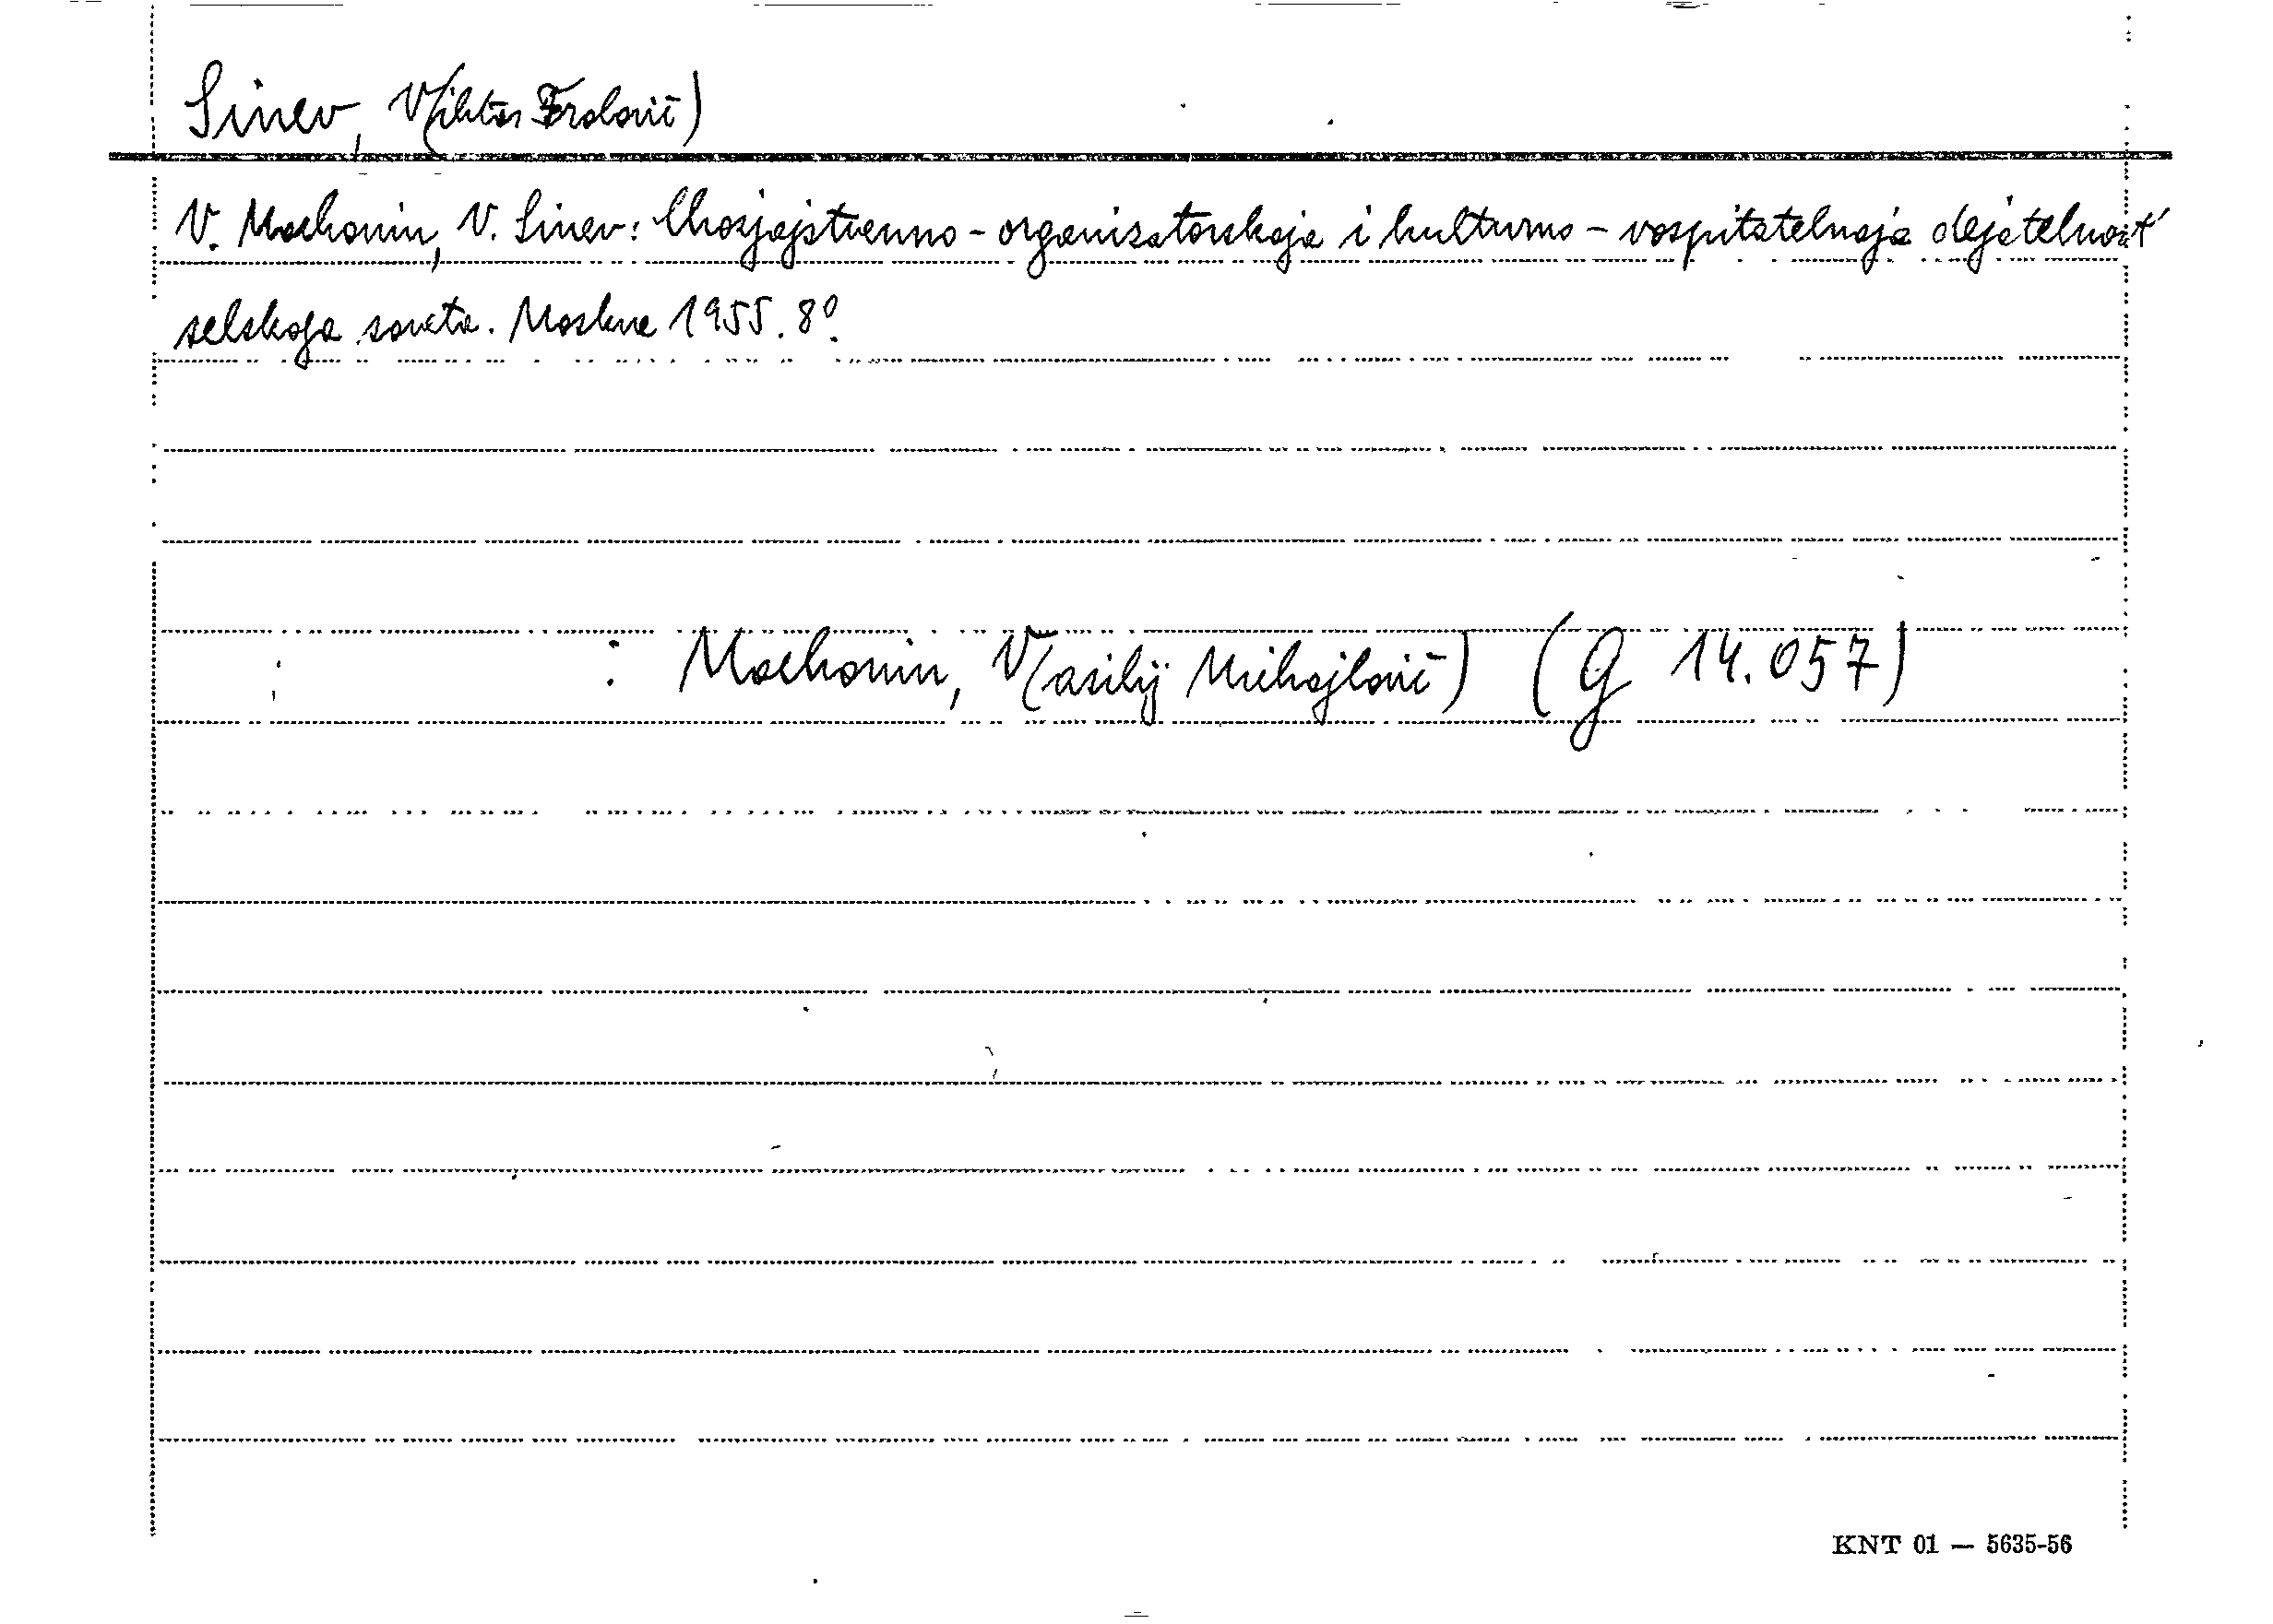 Sinev, V(iktor Frolovič)
V. Mochonin, V. Sinev: Chozjajstvenno - organizatorskaja i kulturno - vospitatelnaja dejatelnost'
selskoga soveta. Moskva 1955. 8°.
: Mochonin, V(asilij Mihajlovič) (G 14.057)
KNT 01 — 5635-56